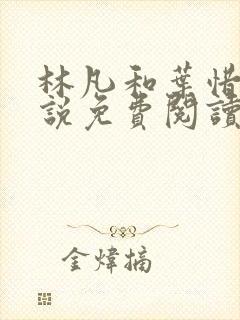 林凡和葉惜
説免費閱讀
金煒摘